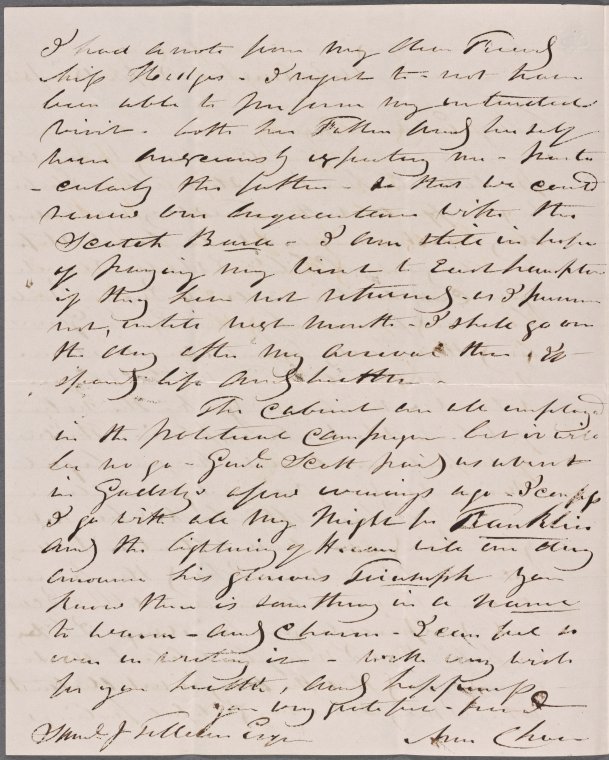 I had a note from my dear Friend
Miss Hedges - I regret to - not have
been able to perform my intended
visit - both her Father and herself
were anxiously expecting me - parti
- cularly the father - so that we could
renew our acquaintance with the
Scotch Bard - I am still in hope
of paying my visit to Easthampton
if they have not returned - as I presume
not, until next month - I shall go on
the day after my arrival there
life and health -
The Cabinet are all employed
in the political Campaign - but it will
be no go - Genl Scott paid us a visit
in a few evenings ago - I confess
I go with all my Might for Franklin
and the lightning of Heaven will one day
announce his glorious Triumph You
know there is something in a name
to warm - and Charm - I can feel it
even in writing it - with my wish
for your health, and happiness
your very grateful friend
Saml. J Tilden Esqr Ann Chase